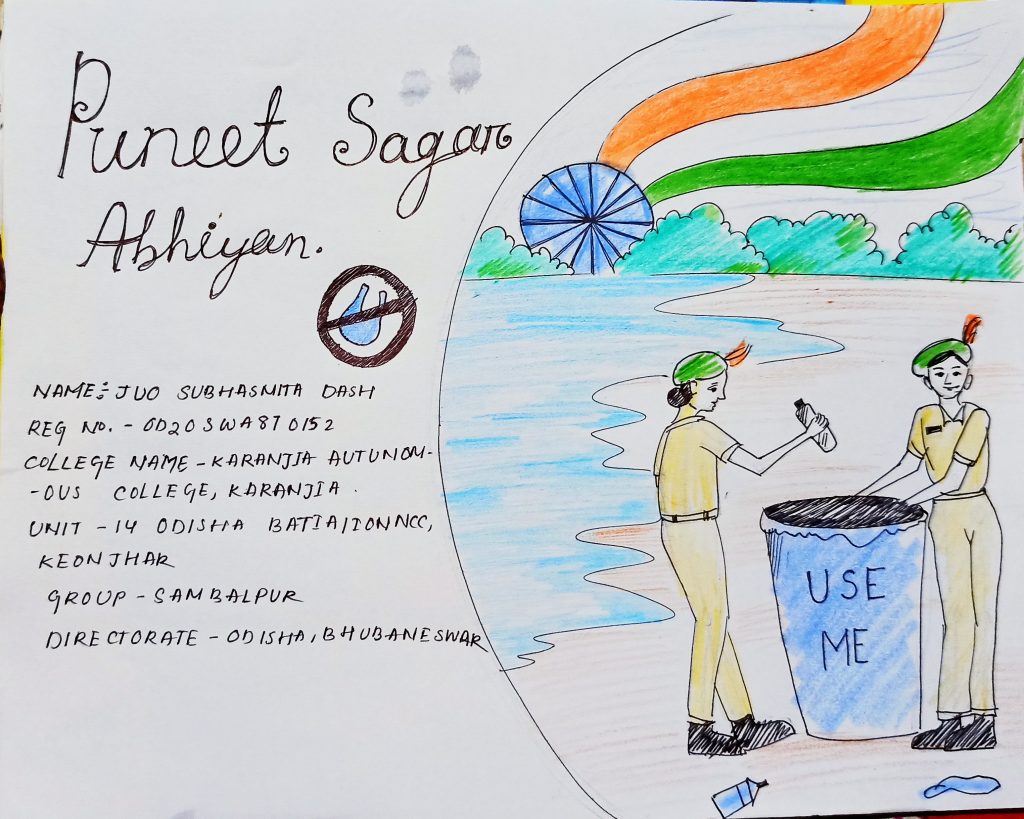 Puneet Sagar
Abhiyan.
NAME:- JUO SUBHASMITA DASH
REG NO. - OD20SWA870152
COLLEGE NAME - KARANJIA AUTUNOM-
-OUS COLLEGE, KARANJIA.
UNIT - 14 ODISHA BATTALION NCC,
KEONJHAR
GROUP - SAMBALPUR
DIRECTORATE - ODISHA, BHUBANESWAR
USE
ME